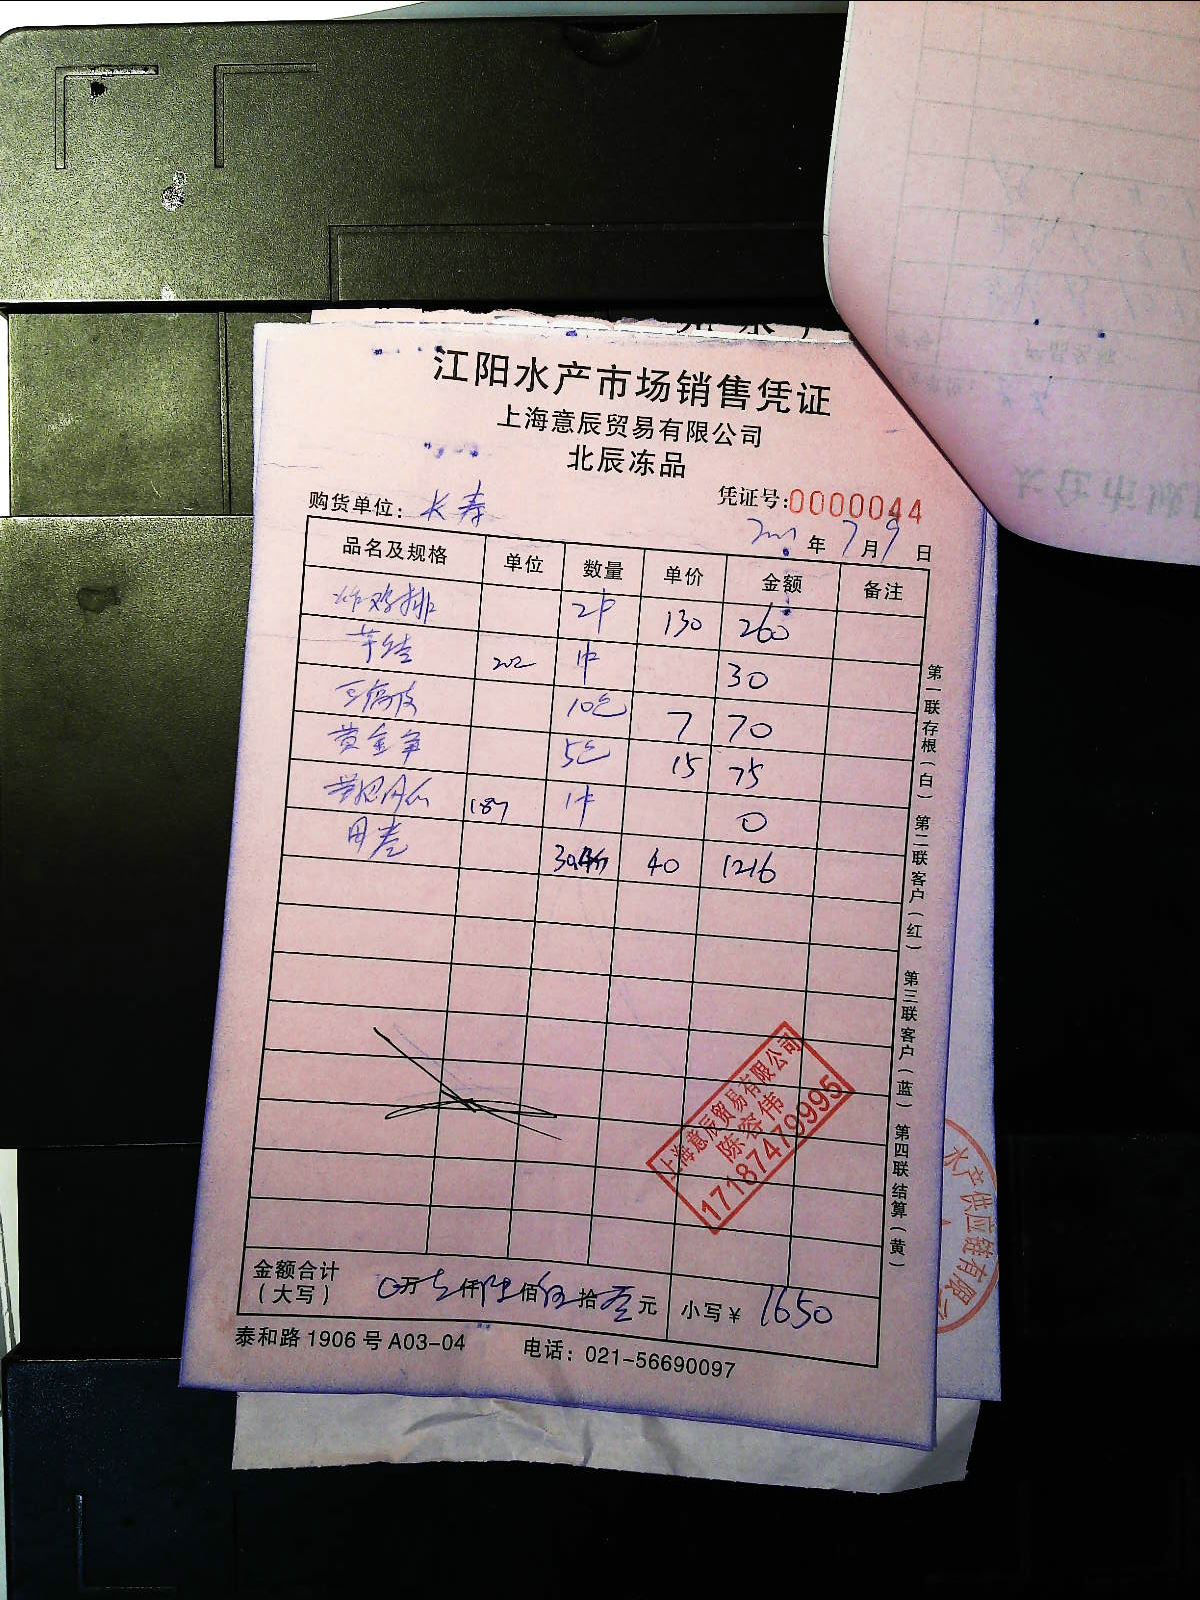 江阳水产市场销售凭证
上海意辰贸易有限公司
北辰冻品
凭证号:0000044
购货单位: 长寿
年 7月9日
品名及规格 单位 数量 单价 金额 备注
炸鸡排 2件 130 260
芋结 202 1件 30
豆腐皮 10包 7 70
黄金 5包 15 75
187 1件 0
30.4斤 40 1216
第一联存根(白) 第二联客户(红) 第三联客户(蓝) 第四联结算(黄)
上海意辰贸易有限公司
陈容伟
17187479995
金额合计
(大写)
0万壹仟陆佰伍拾零元 小写¥ 1650
泰和路1906号A03-04 电话: 021-56690097
水产供应链有限公